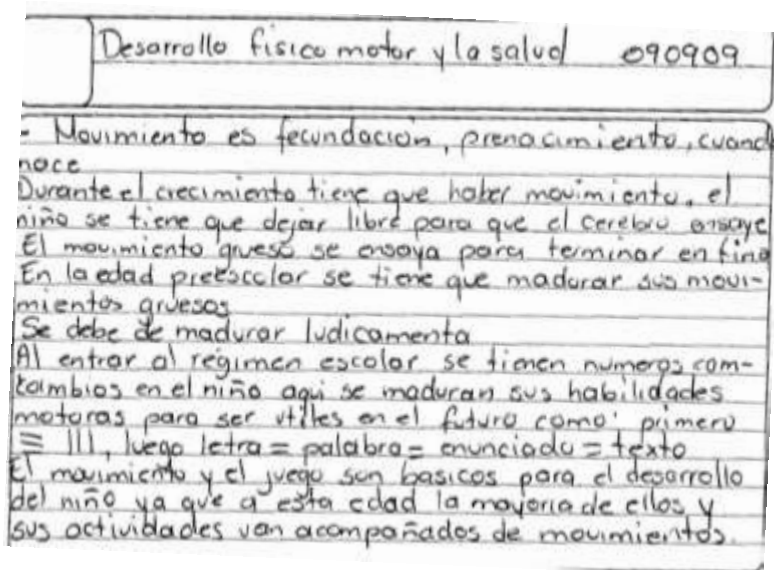 Desarrollo fisico motor y la salud 090909
- Movimiento es fecundación, prenacimiento, cuand
nace
Durante el crecimiento tiene que haber movimiento. el
niño se tiene que dejar libre para que el cerebro ensaye
El movimiento grueso se ensaya para terminar en fino
En la edad preescolar se tiene que madurar sus movi-
mientos gruesos
Se debe de madurar ludicamenta
Al entrar al régimen escolar se tienen numeros com-
cambios en el niño aqui se maduran sus habilidades
motoras para ser utiles en el futuro como: primero
≡ III, luego letra = palabra = enunciado = texto
El movimiento y el juego son basicos para el desarrollo
del niño ya que a esta edad la mayoria de ellos y
sus actividades van acompañados de movimientos.